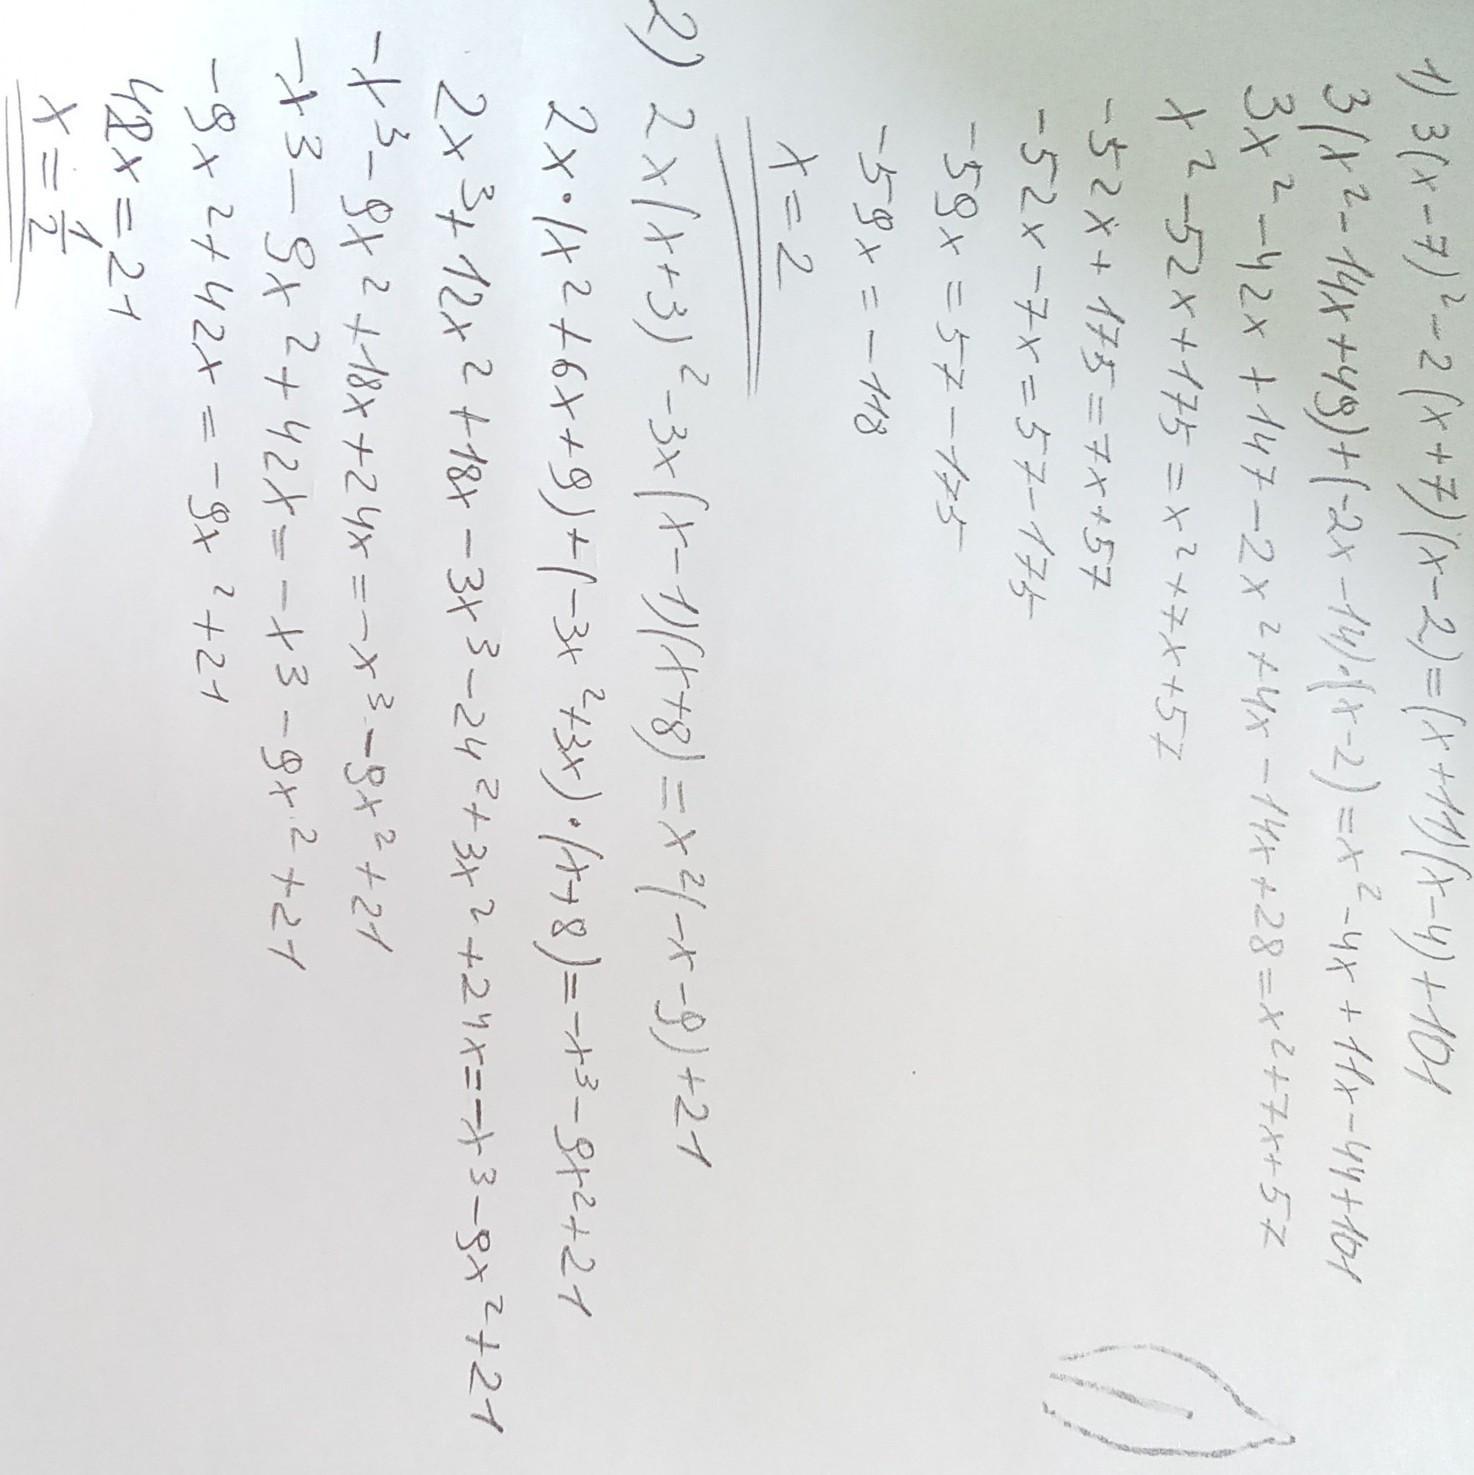 1) 3(x-7)²-2(x+7)(x-2)=(x+11)(x-4)+101
3(x²-14x+49)+(-2x-14)·(x-2)=x²-4x+11x-44+101
3x²-42x+147-2x²+4x-14x+28=x²+7x+57
x²-52x+175=x²+7x+57
-52x+175=7x+57
-52x-7x=57-175
-59x=57-175
-59x=-118
x=2
2) 2x(x+3)²-3x(x-1)(x+8)=x²(-x-9)+21
2x·(x²+6x+9)+(-3x²+3x)·(x+8)=-x³-9x²+21
2x³+12x²+18x-3x³-24²+3x²+24x=-x³-9x²+21
-x³-9x²+18x+24x=-x³-9x²+21
-x3-9x²+42x=-x3-9x²+21
-9x²+42x=-9x²+21
42x=21
x=1/2